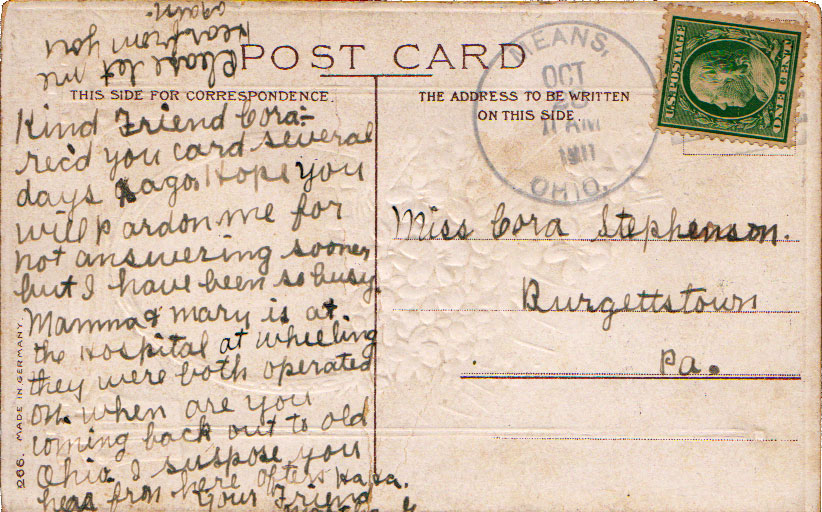 again.
hear from you
Please let me
POST CARD
THIS SIDE FOR CORRESPONDENCE.
THE ADDRESS TO BE WRITTEN
ON THIS SIDE.
MEANS,
OCT
11 AM
1911
OHIO.
U.S. POSTAGE
ONE CENT
Kind Friend Cora:-
rec'd you card several
days ago. Hope you
will pardon me for
not answering sooner
but I have been so busy.
Mamma & mary is at
the Hospital at Wheeling
they were both operated
on. when are you
coming back out to old
Ohio. I suspose you
hear from here often Ha Ha.
Your Friend
Miss Cora Stephenson.
Burgettstown
Pa.
266. MADE IN GERMANY.